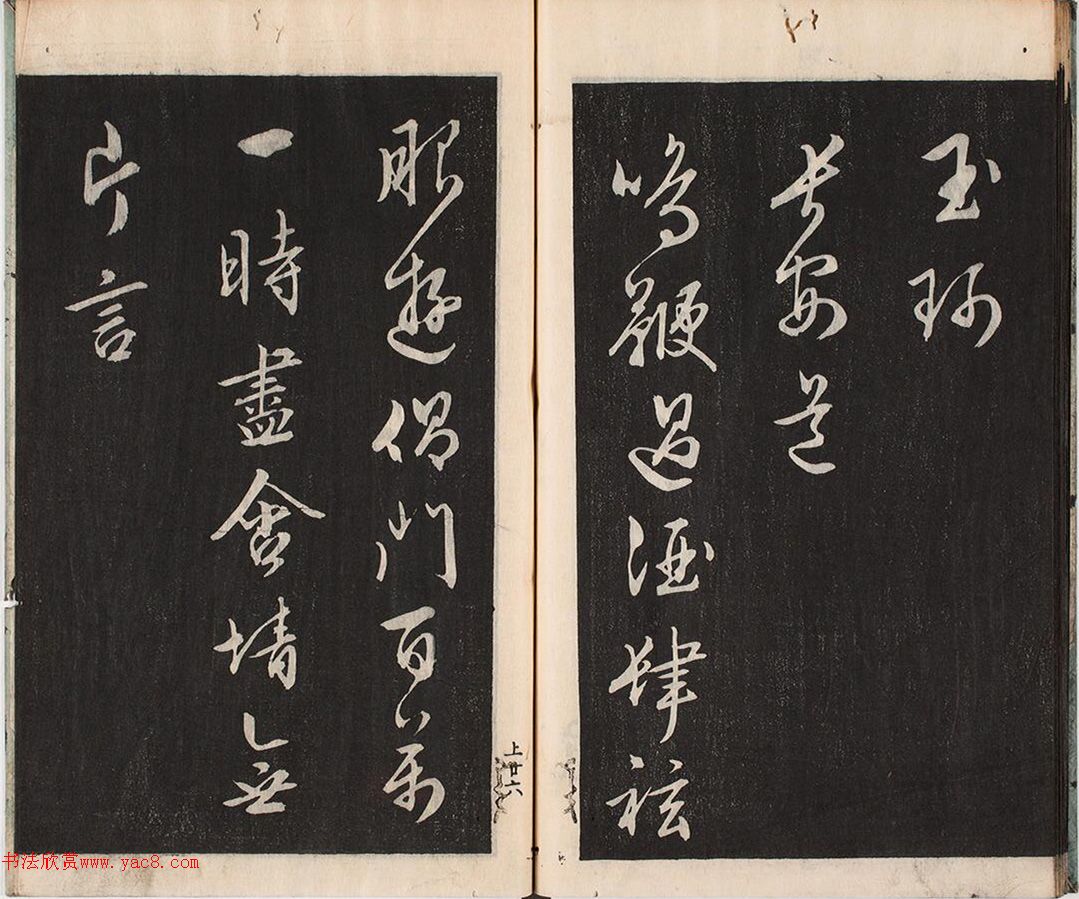 玉珂
長安道
鳴鞭過酒肆袨
服遊倡門百萬
一時盡含情無
片言
上廿六
书法欣赏www.yac8.com